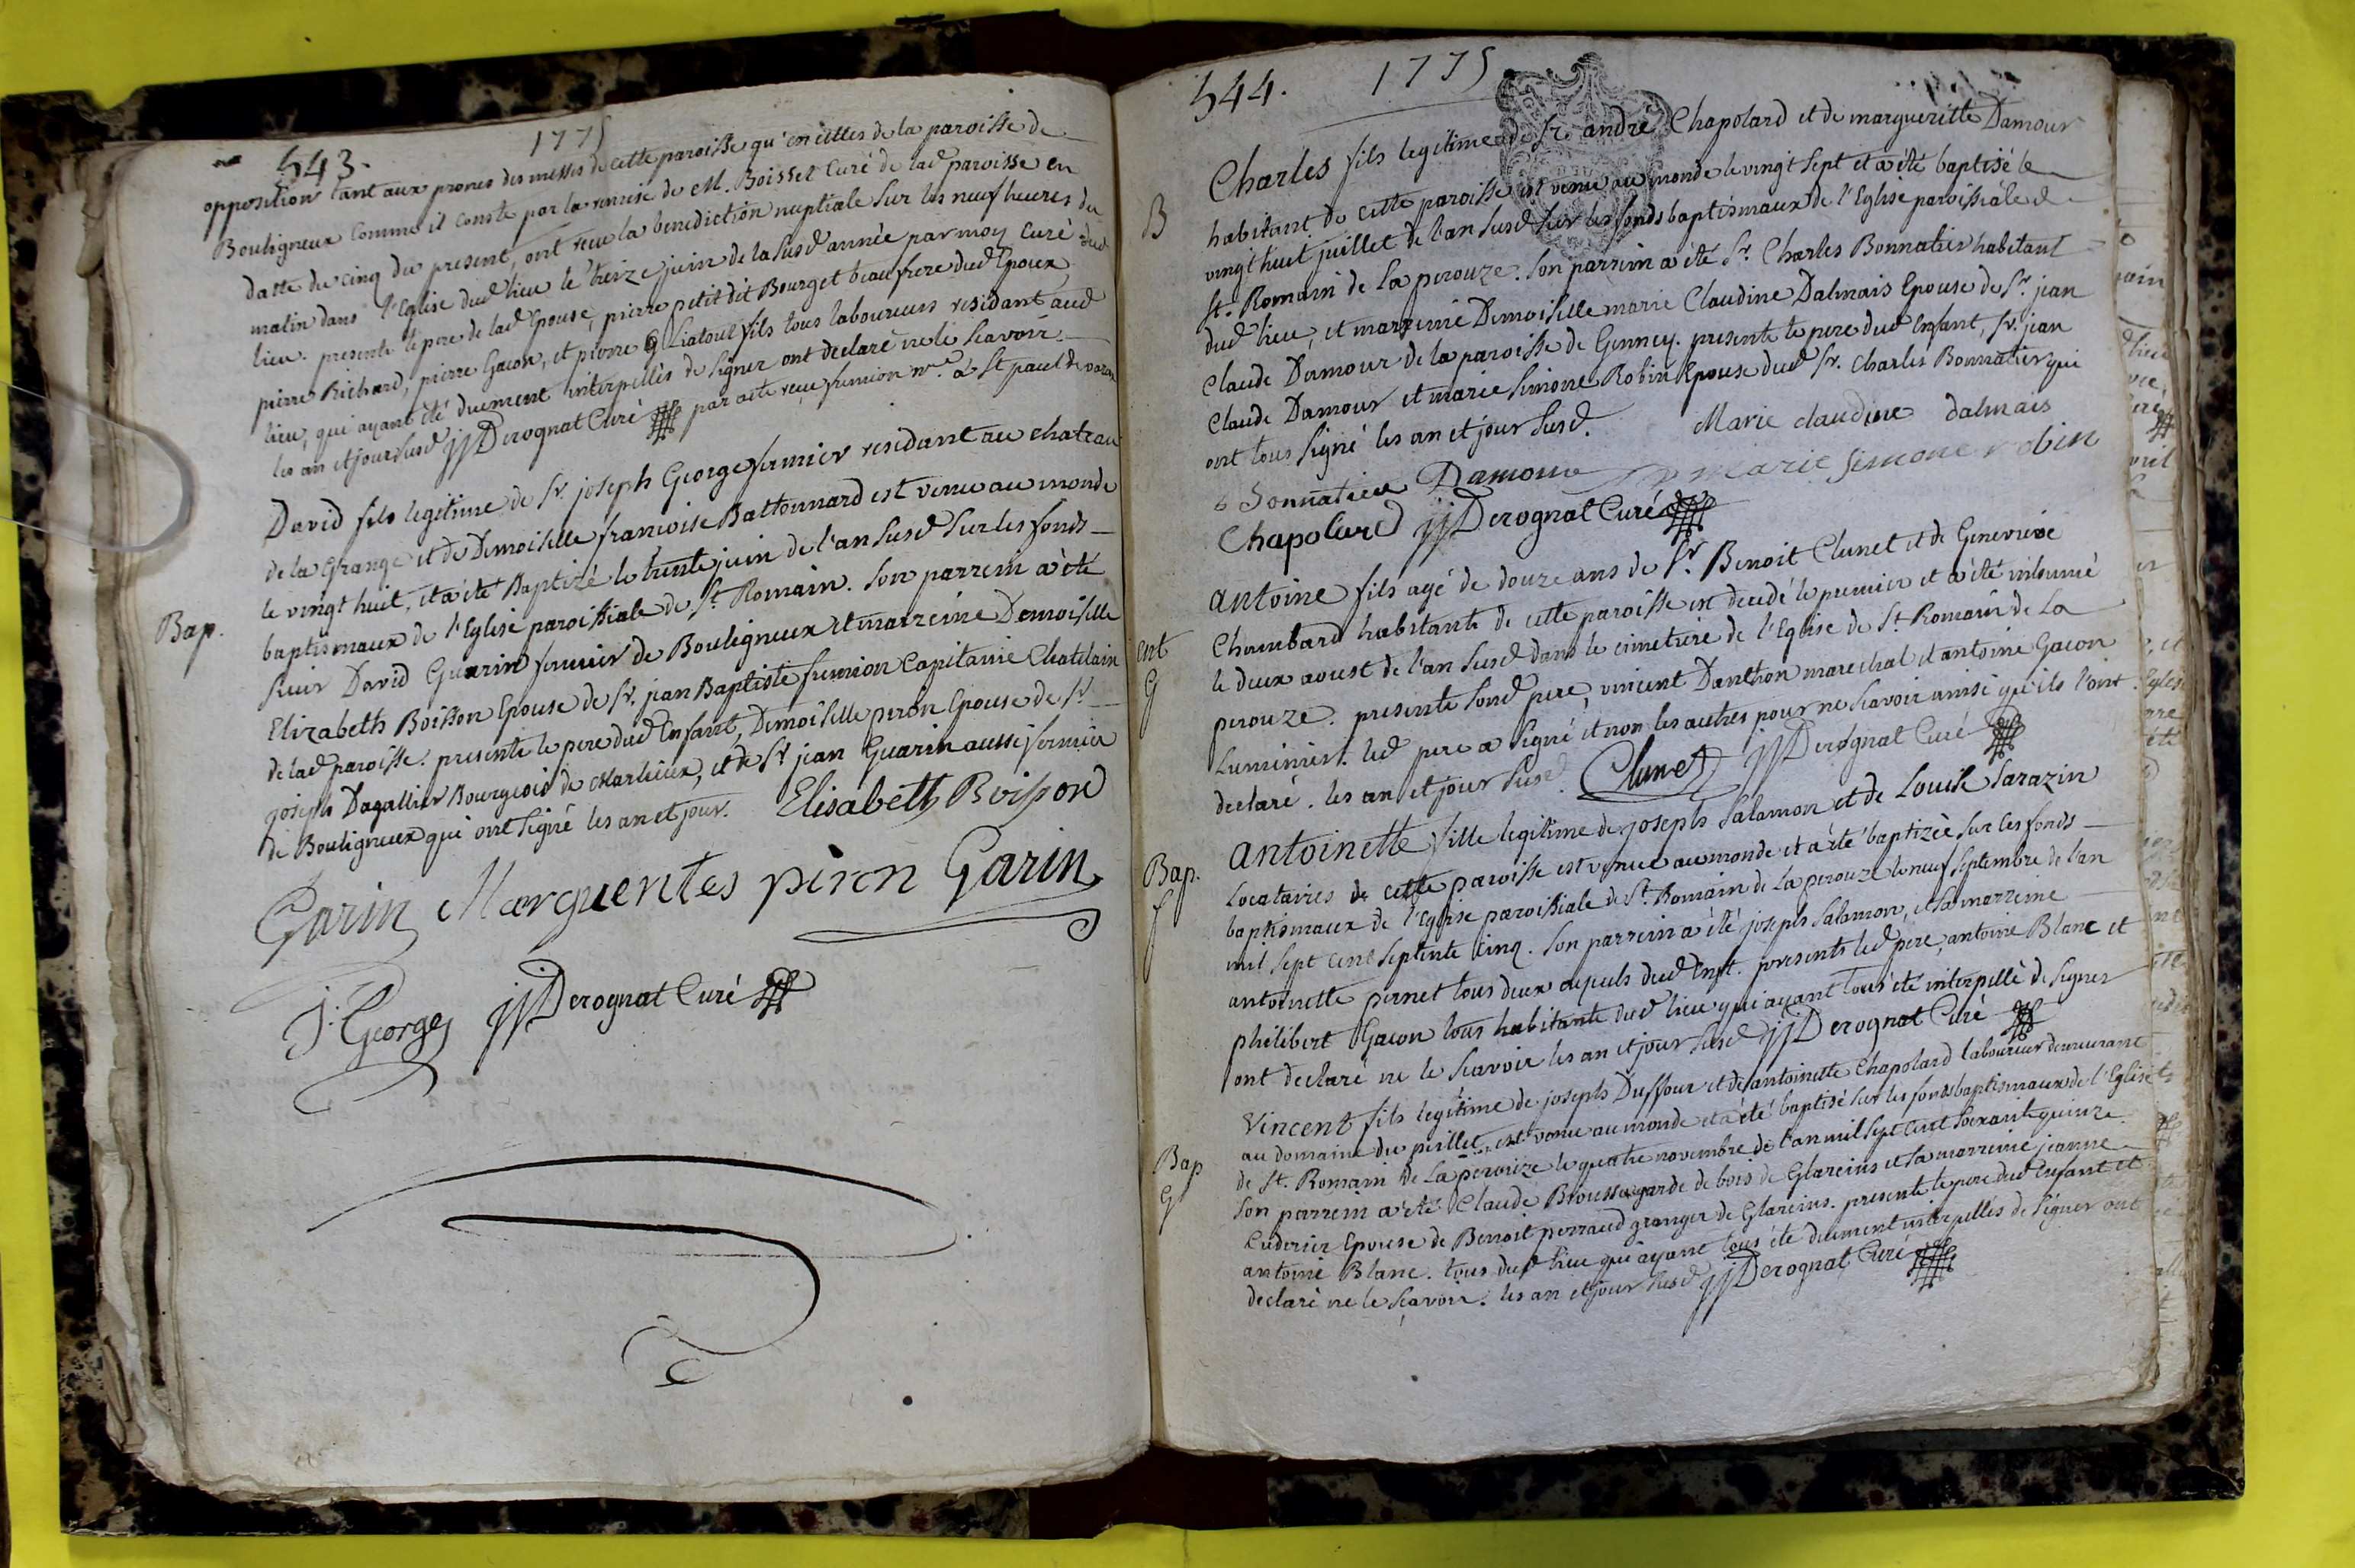 543. 1775
opposition tant aux prones des messes de cette paroisse qu'en celles de la paroisse de
Bouligneux comme il conste par la remise de M. Boisset Curé de lad paroisse en
datte du cinq du present, ont reçu la benediction nuptiale sur les neuf heures du
matin dans l'Eglise dud lieu le treize juin de la susd année par moy Curé dud
lieu. presents le pere de lad Epouse, pierre petit dit Bourget beau frere dud Epoux
pierre Richard, pierre Gacon, et pierre Liatout fils tous laboureurs residant aud
lieu, qui ayant été duement interpellés de signer ont declaré ne le scavoir.
les an et jour susd jjDerognat Curé par acte reçu fremion n.re à St paul de varax
Bap.
David fils legitime de Sr. joseph George fermier residant au chateau
de la Grange et de Demoiselle francoise Battonnard est venu au monde
le vingt huit, et a été Baptizé le trente juin de l'an susd sur les fonds
baptismaux de l'Eglise paroissiale de St. Romain. Son parrein a été
sieur David Guarin fermier de Bouligneux et marreine Demoiselle
Elizabeth Boisson Epouse de Sr. jean Baptiste fremion Capitaine Chatelain
de lad paroisse. presents le pere dud Enfant, Demoiselle peron Epouse de Sr.
joseph Dagallier Bourgeois de Marlieux, et de Sr jean Guarin aussi fermier
de Bouligneux qui ont signé les an et jour. Elisabeth Boisson
Garin Marguerites piron Garin
J. George jjDerognat Curé
544. 1775
B
Charles fils legitime de Sr. andré Chapolard et de margueritte Damour
habitant de cette paroisse est venu au monde le vingt sept et a été baptisé le
vingt huit juillet de l'an susd sur les fonds baptismaux de l'Eglise paroissiale de
St. Romain de la perouze. Son parrein a été Sr. Charles Bonnatier habitant
dud lieu, et marreine Demoiselle marie Claudine Dalmais Epouse de Sr. jean
Claude Damour de la paroisse de Genney. presents le pere dud Enfant, Sr. jean
Claude Damour et marie simone Robin Epouse dud Sr. Charles Bonnatier qui
ont tous signé les an et jour susd. Marie claudine dalmais
Bonnatier Damour marie simone robin
Chapolard jjDerognat Curé
ent
G
antoine fils agé de douze ans de Sr. Benoit Clunet et de Genevieve
Chambard habitants de cette paroisse est decedé le premier et a été inhumé
le deux aoust de l'an susd dans le cimetiere de l'Eglise de St. Romain de La
perouze. presents sond pere, vincent Danthon marechal et antoine Gacon
Luminier. led pere a signé et non les autres pour ne scavoir ainsi qu'ils l'ont
declaré. les an et jour susd. Clunet jjDerognat Curé
Bap.
f
antoinette fille legitime de joseph Salamon et de Louise Sarazin
Locataires de cette paroisse est venue au monde et a été baptizée sur les fonds
baptismaux de l'Eglise paroissiale de St. Romain de La perouze le neuf septembre de l'an
mil sept cent septente cinq. Son parrein a été joseph Salamon, et sa marreine
antoinette pernet tous deux ayeuls dud Enft. presents led pere, antoine Blanc et
philibert Gacon tous habitants dud lieu qui ayant tous été interpellé de signer
ont declaré ne le scavoir les an et jour susd jjDerognat Curé
Bap
G
Vincent fils legitime de joseph Duffour et de antoinette Chapolard laboureur demeurant
au domaine du peillet, est venu au monde et a été baptisé sur les fonds baptismaux de l'Eglise
de St. Romain de La perouze le quatre novembre de l'an mil sept cent soixante quinze.
Son parrein a été Claude Brousse garde de bois de Glareins et sa marreine jeanne
Cuderier Epouse de Benoit perraud granger de Glareins. presents le pere dud Enfant et
antoine Blanc. tous dud lieu qui ayant tous été duement interpellés de signer ont
declaré ne le scavoir. les an et jour susd jjDerognat Curé